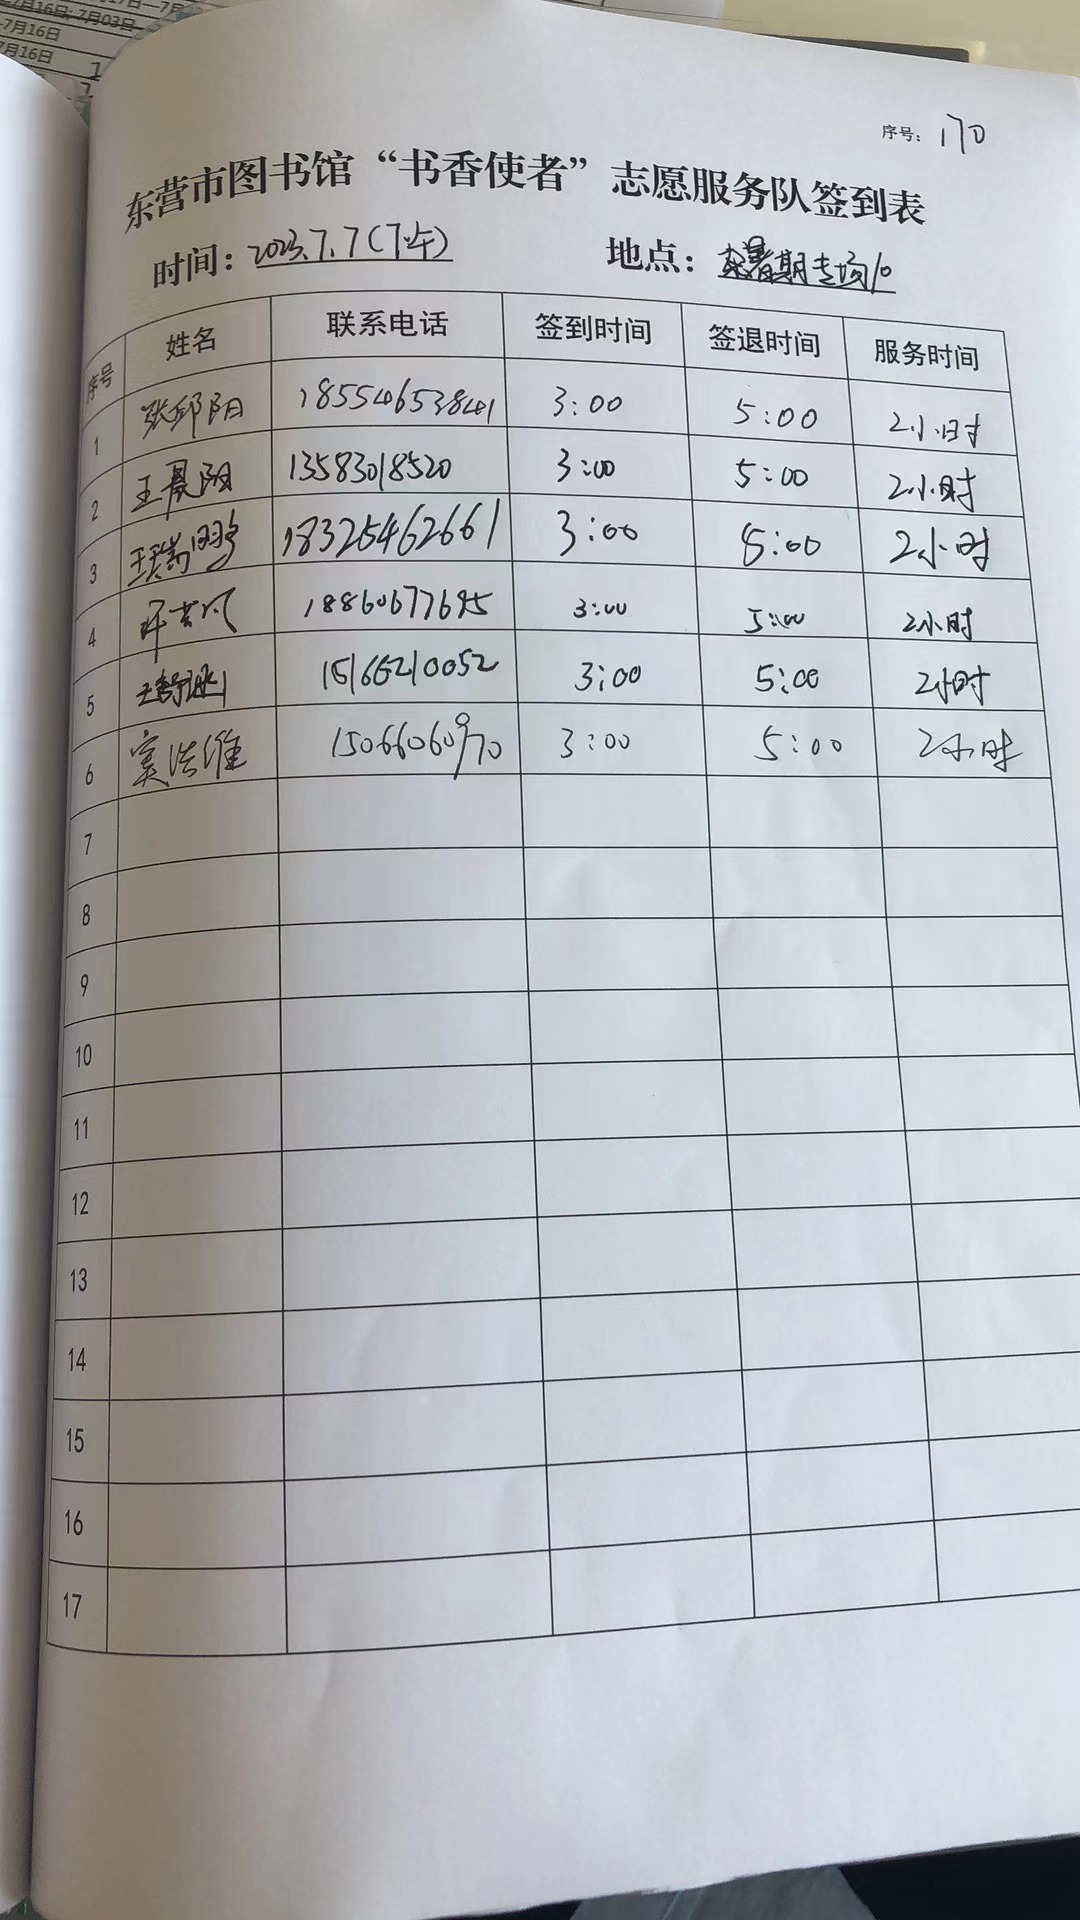 7月16日
7月16日
序号：170
东营市图书馆“书香使者”志愿服务队签到表
时间：2023.7.7(下午) 地点：暑期专场10
序号 姓名 联系电话 签到时间 签退时间 服务时间
1 张邱阳 18554653841 3:00 5:00 2小时
2 王晨阳 13583018520 3:00 5:00 2小时
3 王瑞 18325462661 3:00 5:00 2小时
4 许 18860677695 3:00 5:00 2小时
5 王 15165210052 3:00 5:00 2小时
6 窦浩维 15066060970 3:00 5:00 2小时
7
8
9
10
11
12
13
14
15
16
17